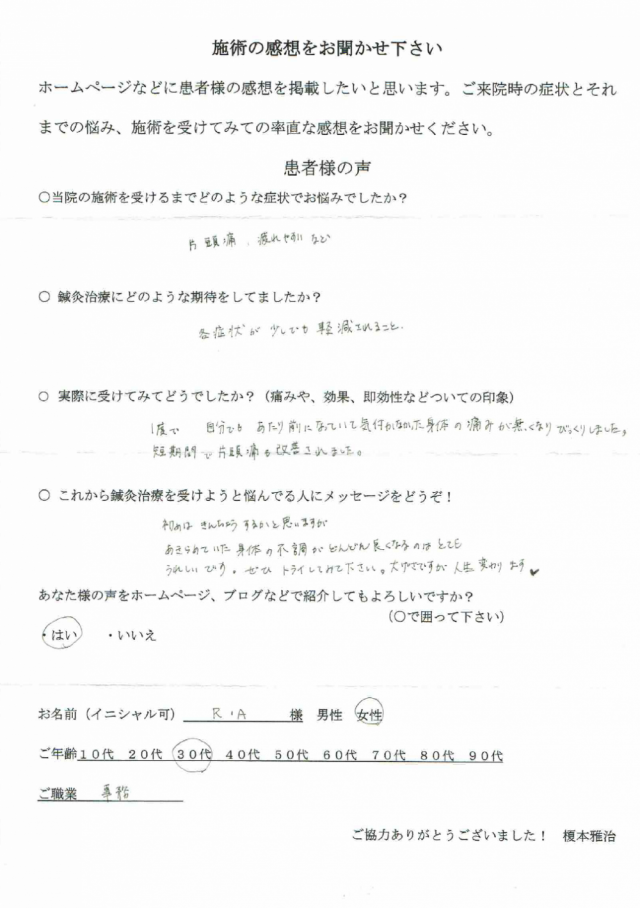 施術の感想をお聞かせ下さい
ホームページなどに患者様の感想を掲載したいと思います。ご来院時の症状とそれ
までの悩み、施術を受けてみての率直な感想をお聞かせください。
患者様の声
○当院の施術を受けるまでどのような症状でお悩みでしたか？
片頭痛、疲れやすい など
○ 鍼灸治療にどのような期待をしてましたか？
各症状が 少しでも 軽減されること.
○ 実際に受けてみてどうでしたか？（痛みや、効果、即効性などついての印象）
1度で 自分でも あたり前になっていて気付かなかった身体の痛みが無くなりびっくりしました。
短期間で片頭痛も改善されました。
○ これから鍼灸治療を受けようと悩んでる人にメッセージをどうぞ！
初めは きんちょう するかと思いますが
あきらめていた 身体の不調が どんどん良くなるのは とても
うれしいです。ぜひ トライしてみて下さい。大げさですが 人生 変わります♥
あなた様の声をホームページ、ブログなどで紹介してもよろしいですか？
（○で囲って下さい）
・はい ・いいえ
お名前（イニシャル可） R・A 様 男性 女性
ご年齢 １０代 ２０代 ３０代 ４０代 ５０代 ６０代 ７０代 ８０代 ９０代
ご職業 事務
ご協力ありがとうございました！ 榎本雅治